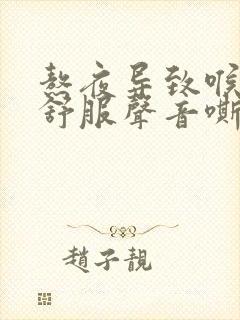 熬夜导致喉
舒服聲音嘶
趙子靚